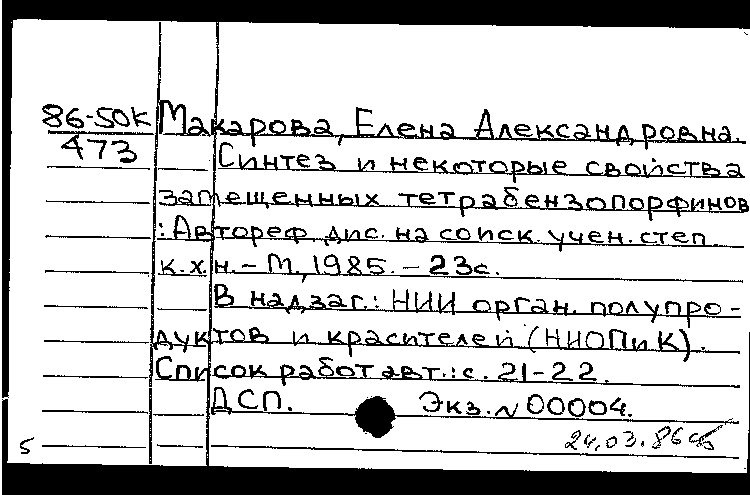 86-50К Макарова, Елена Александровна.
473 Синтез и некоторые свойства
замещенных тетрабензопорфинов
: Автореф. дис. на соиск. учен. степ.
к.х.н. – М., 1985. – 23с.
В надзаг.: НИИ орган. полупро-
дуктов и красителей (НИОПиК).
Список работ авт.: с. 21-22.
ДСП. Экз. N 00004.
5 24.03.86